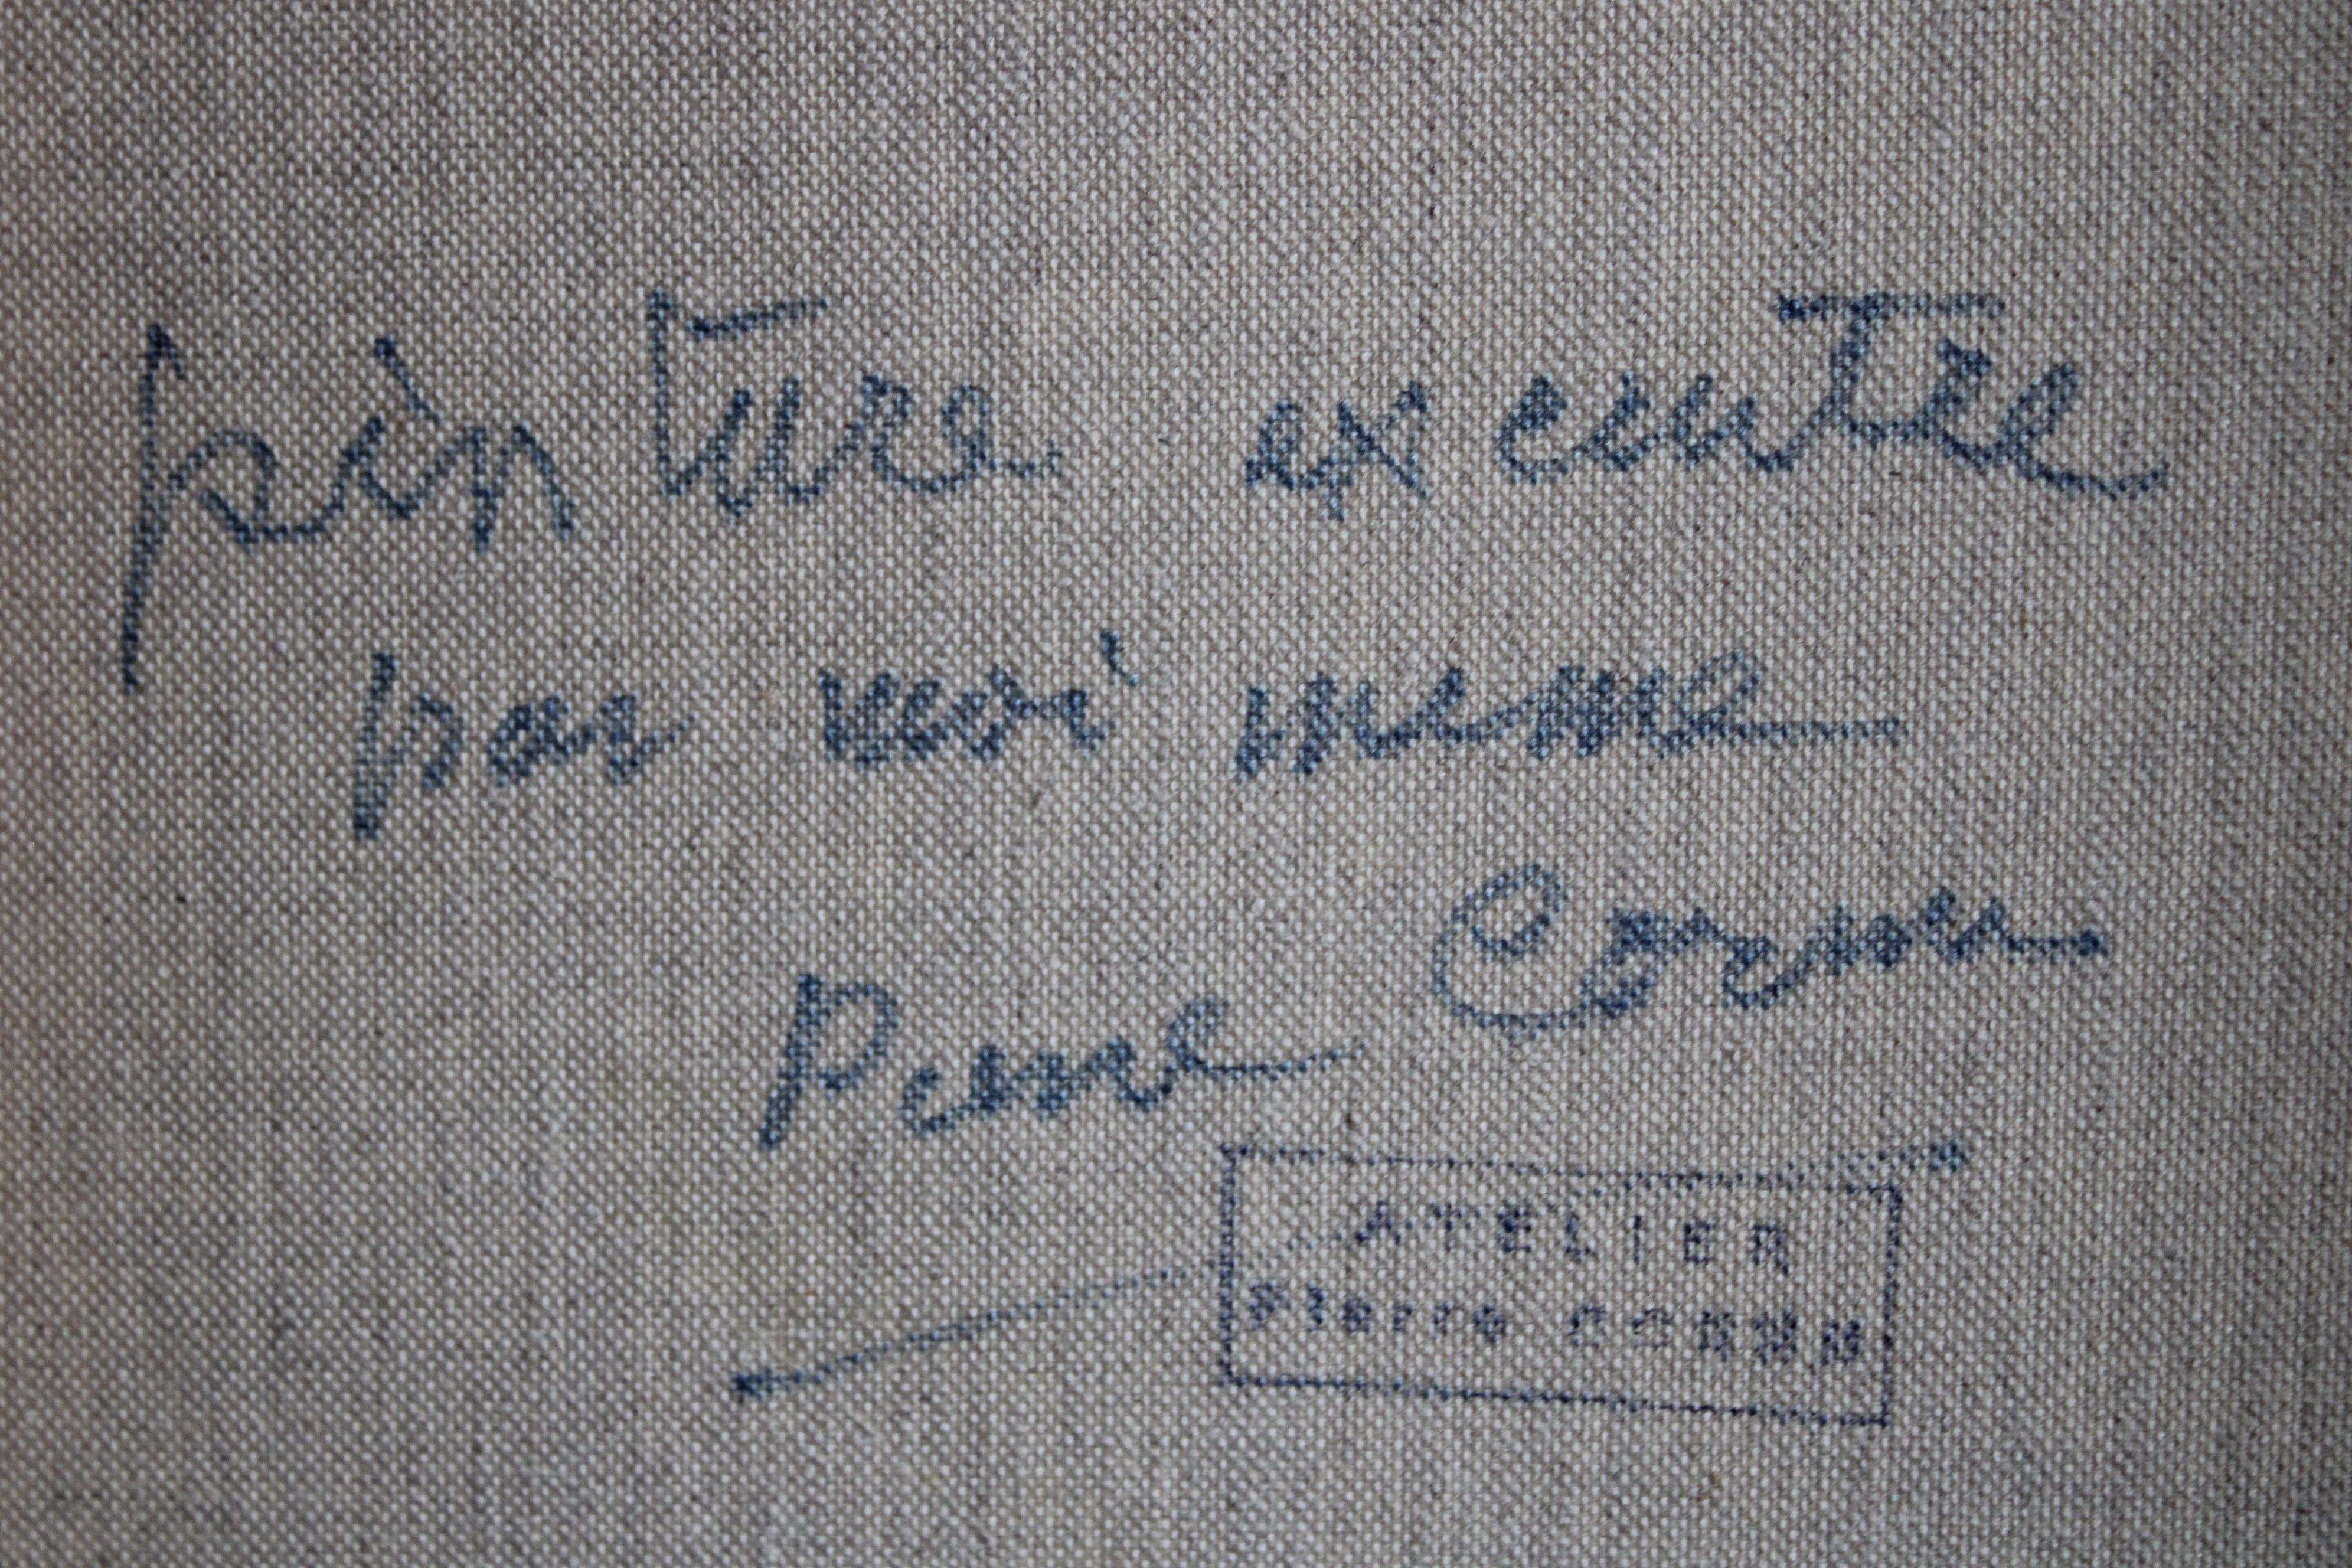 peinture executée
par moi meme
Pierre Cornu
ATELIER
Pierre CORNU